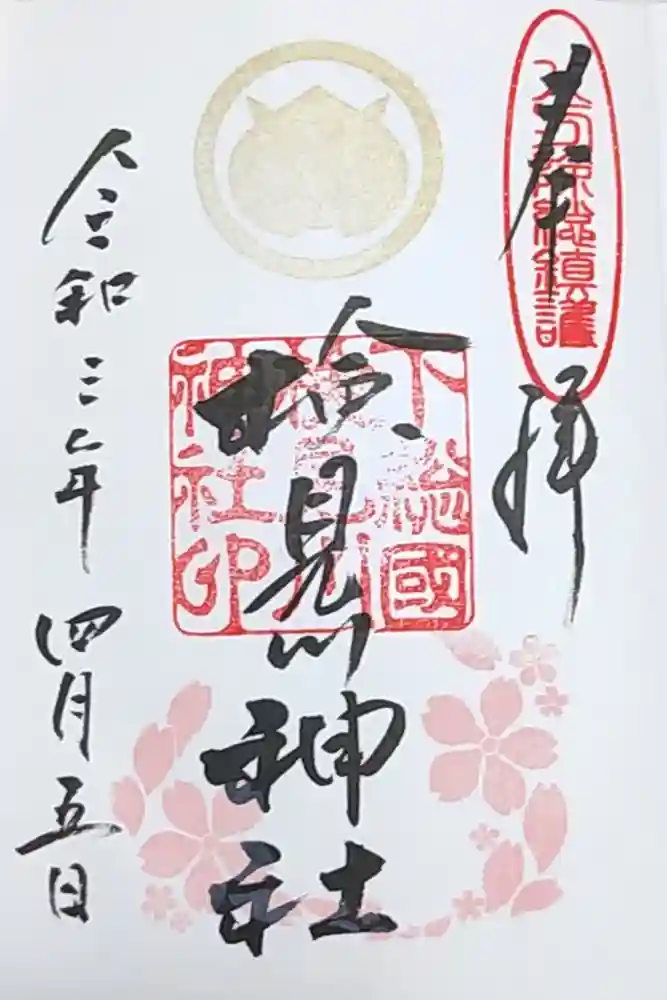 奉拝
八方除総鎮護
検見川神社
下総國
検見川
神社印
令和三年
四月五日